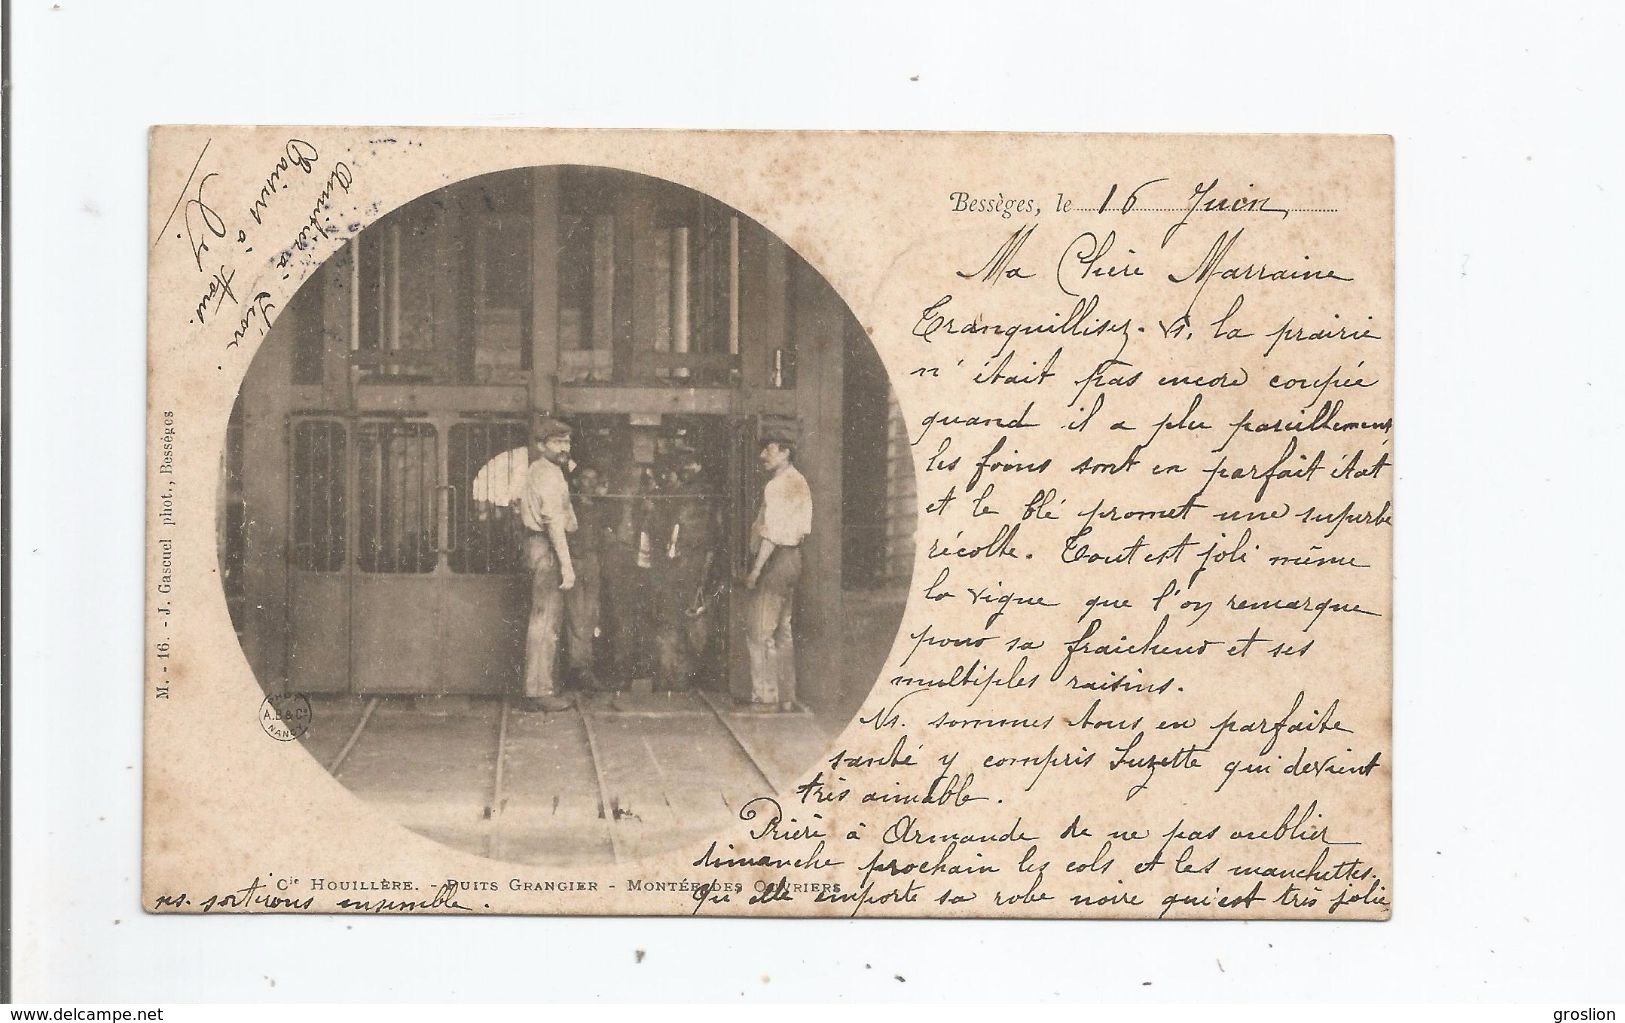 Bessèges, le 16 Juin
Ma Chère Marraine
Tranquillisez-vs, la prairie
n'était pas encore coupée
quand il a plu pareillement
les foins sont en parfait état
et le blé promet une superbe
récolte. Tout est joli même
la vigne que l'on remarque
pour sa fraicheur et ses
multiples raisins.
Ns. sommes tous en parfaite
santé y compris Suzette qui devient
très aimable.
Prière à Armande de ne pas oublier
dimanche prochain les cols et les manchettes.
Qu'elle emporte sa robe noire qui est très jolie
ns. sortirons ensemble.
Amitiés à
Baisers à tous.
Cie HOUILLÈRE. - PUITS GRANGIER - MONTÉE DES OUVRIERS
M. - 16. - J. Gascuel phot., Bessèges
PHOT
A.B & Cie
NANCY
www.delcampe.net
groslion